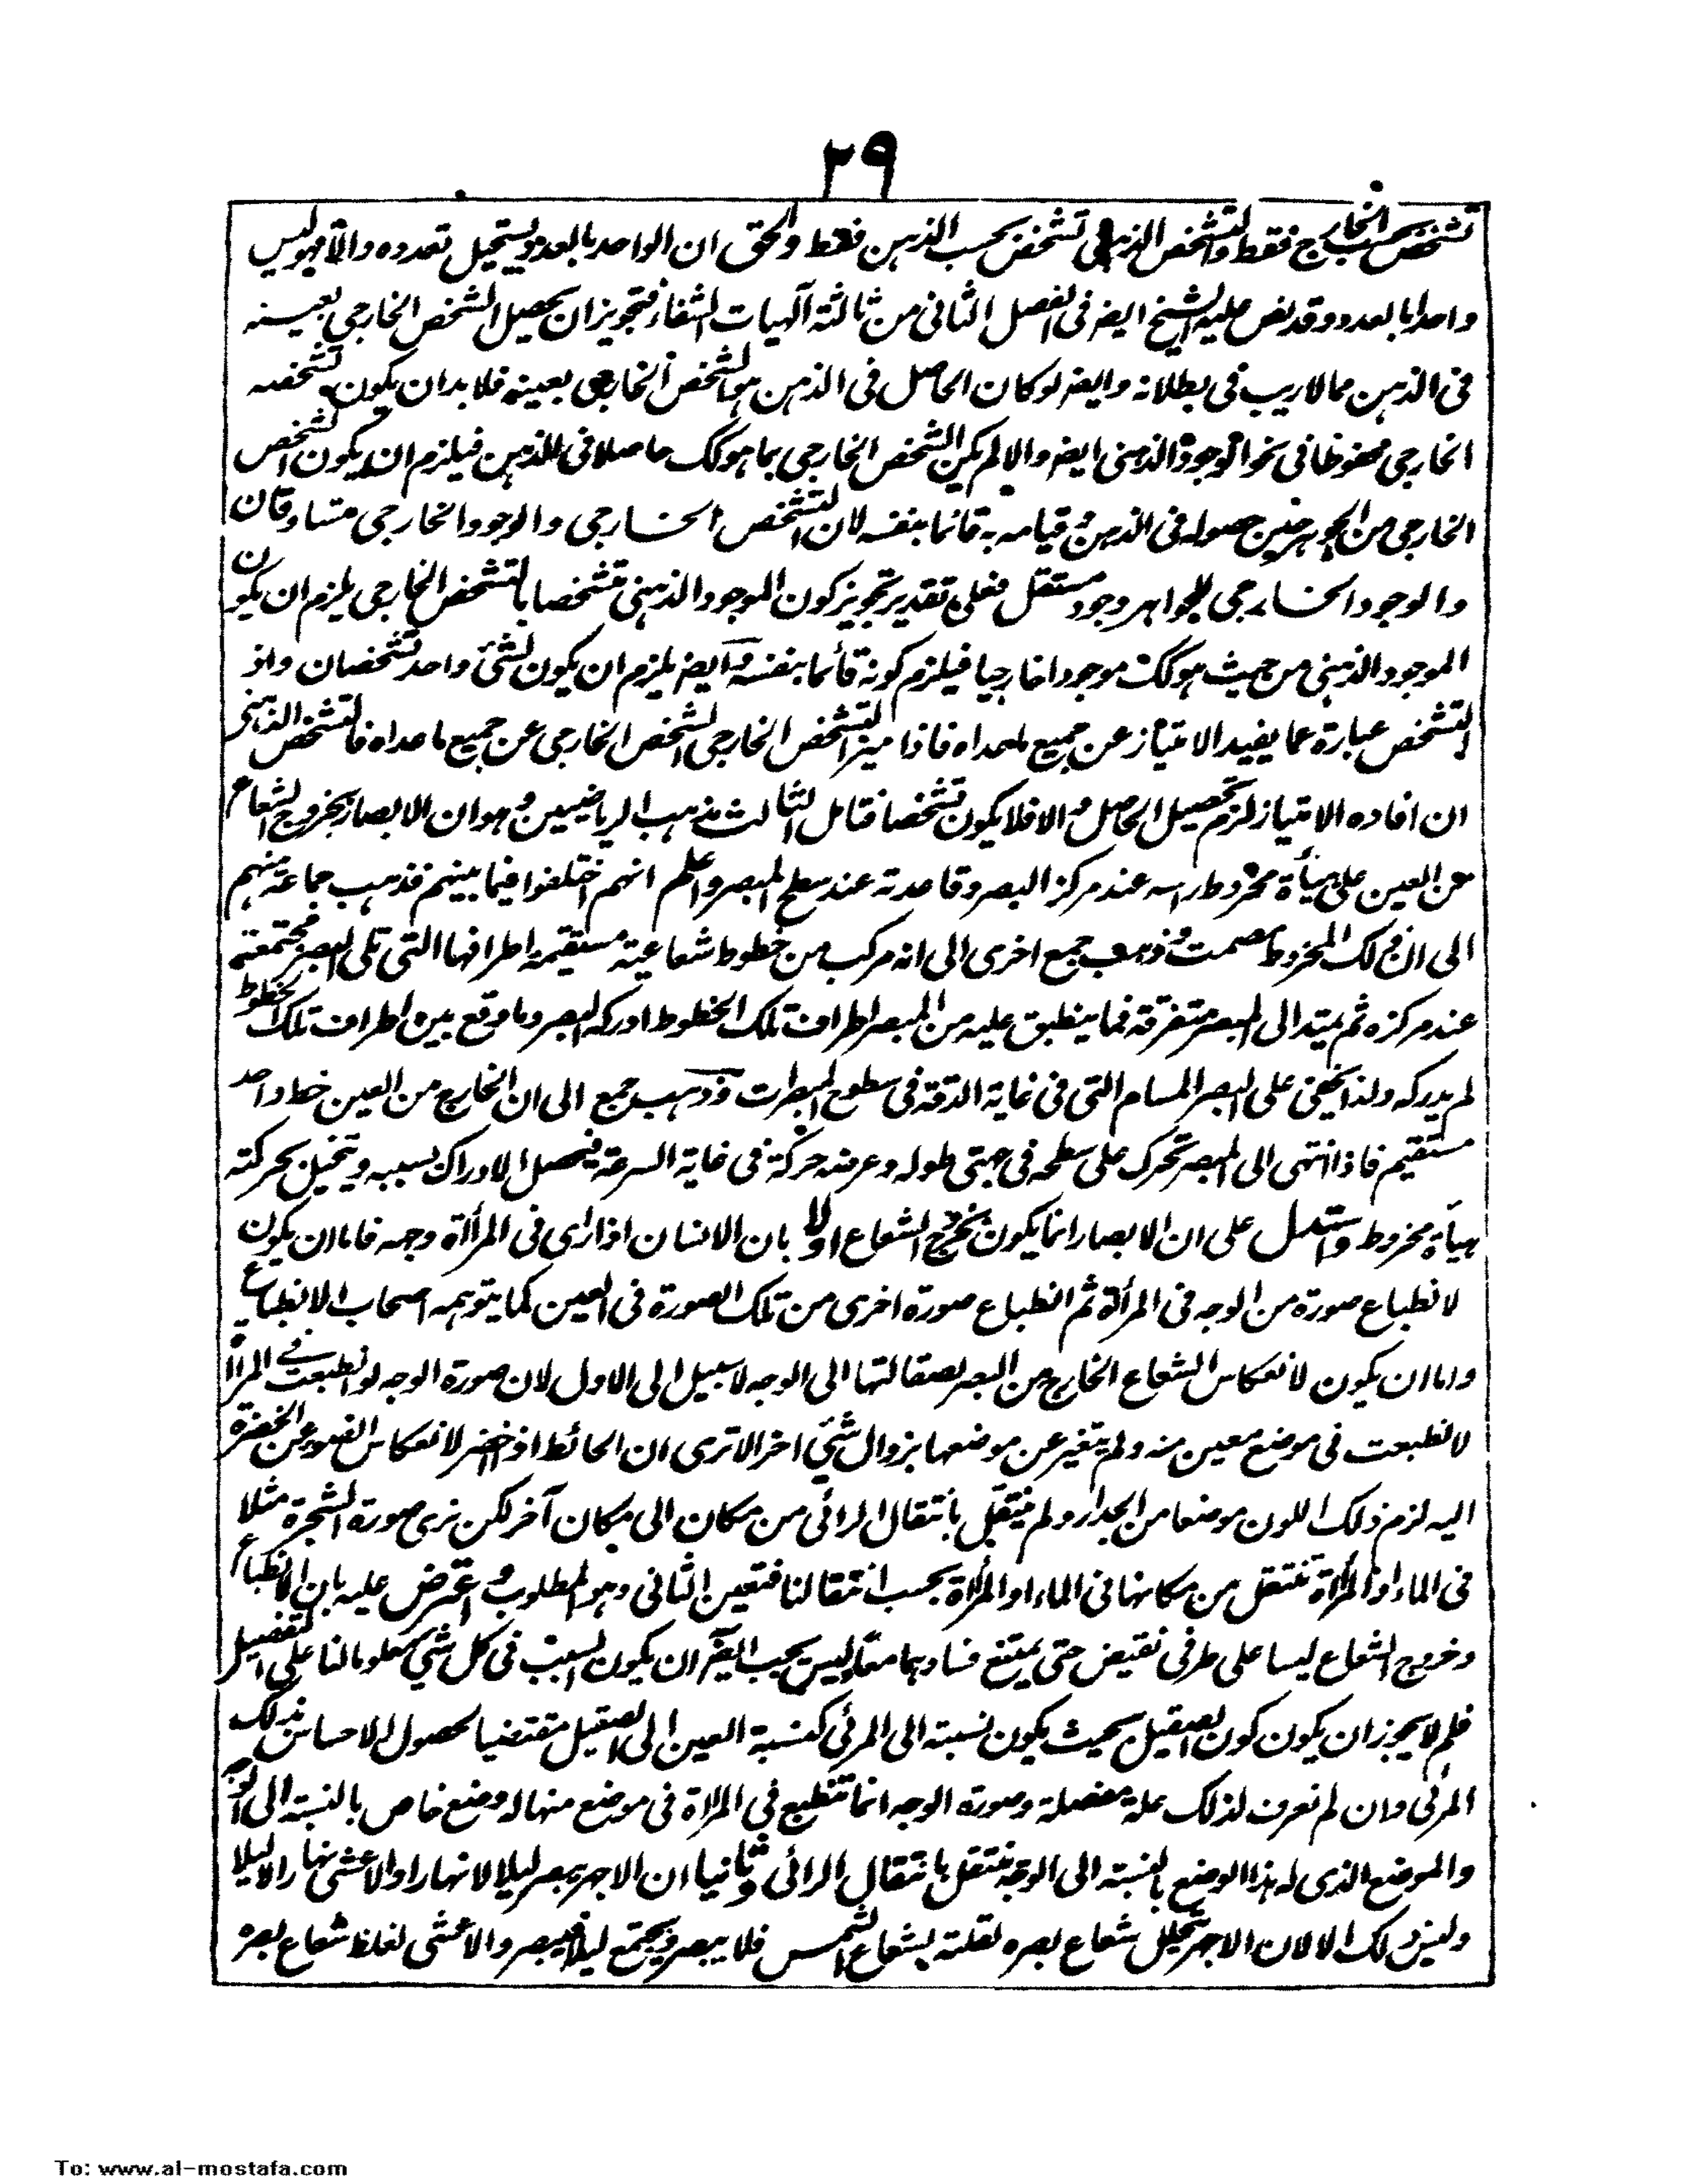 ٢٩
تشخص بحسب الخارج فقط والتشخص الذهني تشخص بحسب الذهن فقط والحق ان الواحد بالعدد يستحيل تعدده والا فهو ليس
واحدا بالعدد وقد نص عليه الشيخ ايضا في الفصل الثاني من ثالثة آلهيات الشفاء فتجويز ان يحصل الشخص الخارجي بعينه
في الذهن مما لا ريب في بطلانه وايضا لو كان الحاصل في الذهن هو الشخص الخارجي بعينه فلا بد ان يكون تشخصه
الخارجي محفوظا في نحو الوجود الذهني ايضا والا لم يكن الشخص الخارجي بما هو كك حاصلا في الذهن فيلزم ان يكون الشخص
الخارجي من الجوهر حين حصوله في الذهن وقيامه به قائما بنفسه لان التشخص الخارجي والوجود الخارجي متساوقان
والوجود الخارجي للجواهر وجود مستقل فعلى تقدير تجويز كون الموجود الذهني متشخصا بالتشخص الخارجي يلزم ان يكون
الموجود الذهني من حيث هو كك موجودا خارجيا فيلزم كونه قائما بنفسه وايضا يلزم ان يكون لشئ واحد تشخصان واذ
التشخص عبارة عما يفيد الامتياز عن جميع ما عداه فاذا ميز التشخص الخارجي الشخص الخارجي عن جميع ما عداه فالتشخص الذهني
ان افاده الامتياز لزم تحصيل الحاصل والا فلا يكون تشخصا فتامل الثالث مذهب الرياضيين وهو ان الابصار بخروج الشعاع
عن العين على هيأة مخروط راسه عند مركز البصر وقاعدته عند سطح المبصر واعلم انهم اختلفوا فيما بينهم فذهب جماعة منهم
الى ان ذلك المخروط مصمت وذهب جمع اخرى الى انه مركب من خطوط شعاعية مستقيمة اطرافها التي تلي البصر مجتمعة
عند مركزه ثم يمتد الى المبصر متفرقة فما ينطبق عليه من المبصر اطراف تلك الخطوط ادركه البصر وما وقع بين اطراف تلك الخطوط
لم يدركه ولذا يخفى على البصر المسام التي في غاية الدقة في سطوح المبصرات وذهب جمع الى ان الخارج من العين خط واحد
مستقيم فاذا انتهى الى المبصر تحرك على سطحه في جهتي طوله وعرضه حركة في غاية السرعة فيحصل الادراك بسببه ويتخيل بحركته
هيأة مخروط واستدل على ان الابصار انما يكون بخروج الشعاع اولا بان الانسان اذا راى في المرأة وجهه فاما ان يكون
لانطباع صورة من الوجه في المرأة ثم انطباع صورة اخرى من تلك الصورة في العين كما يتوهمه اصحاب الانطباع
واما ان يكون لانعكاس الشعاع الخارج من البصر لصقالتها الى الوجه لا سبيل الى الاول لان صورة الوجه لو انطبعت في المرأة
لانطبعت في موضع معين منه ولم يتغير عن موضعها بزوال شئ اخر الا ترى ان الحائط اذا اخضر لانعكاس الضوء عن الخضرة
اليه لزم ذلك اللون موضعا من الجدار ولم ينتقل بانتقال الرائي من مكان الى مكان آخر لكن نرى صورة الشجرة مثلا
في الماء او المرأة تنتقل من مكانها في الماء او المرأة بحسب انتقالنا فتعين الثاني وهو المطلوب واعترض عليه بان الانطباع
وخروج الشعاع ليسا على طرفي نقيض حتى يمتنع فسادهما معا وليس يجب ايضا ان يكون السبب في كل شئ معلوما لنا على التفصيل
فلم لا يجوز ان يكون كون الصقيل بحيث يكون نسبته الى المرئي كنسبة العين الى الصقيل مقتضيا لحصول الاحساس بذلك
المرئي وان لم نعرف لذلك علة مفصلة وصورة الوجه انما تنطبع في المرأة في موضع منها له وضع خاص بالنسبة الى الوجه
والموضع الذي له هذا الوضع بالنسبة الى الوجه ينتقل بانتقال الرائي وثانيا ان الاجهر يبصر ليلا لا نهارا والاعشى نهارا لا ليلا
وليس ذلك الا لان الاجهر يتحلل شعاع بصره لقلته بشعاع الشمس فلا يبصر ويجتمع ليلا فيبصر والاعشى لغلظ شعاع بصره
To: www.al-mostafa.com